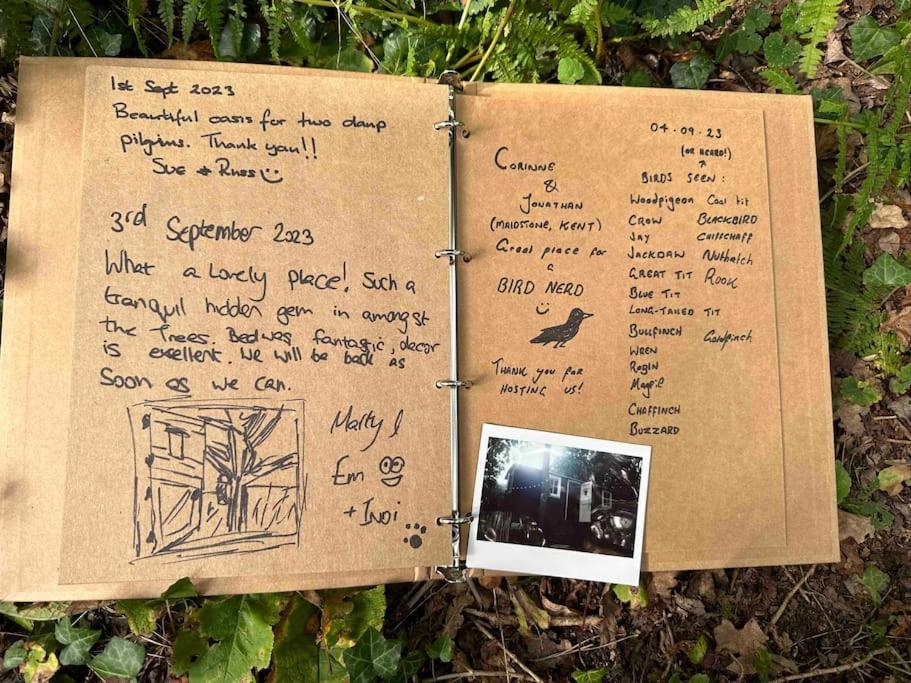 1st Sept 2023
Beautiful oasis for two damp
pilgrims. Thank you!!
Sue & Russ
3rd September 2023
What a Lovely place! Such a
tranquil hidden gem in amongst
the Trees. Bed was fantastic, decor
is excellent. We will be back as
Soon as we can.
Marty &
Em
+ INDI
04.09.23
CORINNE
&
JONATHAN
(MAIDSTONE, KENT)
Great place for
a
BIRD NERD
THANK YOU FOR
HOSTING US!
(OR HEARD!)
BIRDS SEEN:
Woodpigeon Coal tit
CROW BLACKBIRD
JAY CHIFFCHAFF
JACKDAW Nuthatch
GREAT TIT ROOK
BLUE TIT
LONG-TAILED TIT
BULLFINCH Goldfinch
WREN
ROBIN
MAGPIE
CHAFFINCH
BUZZARD